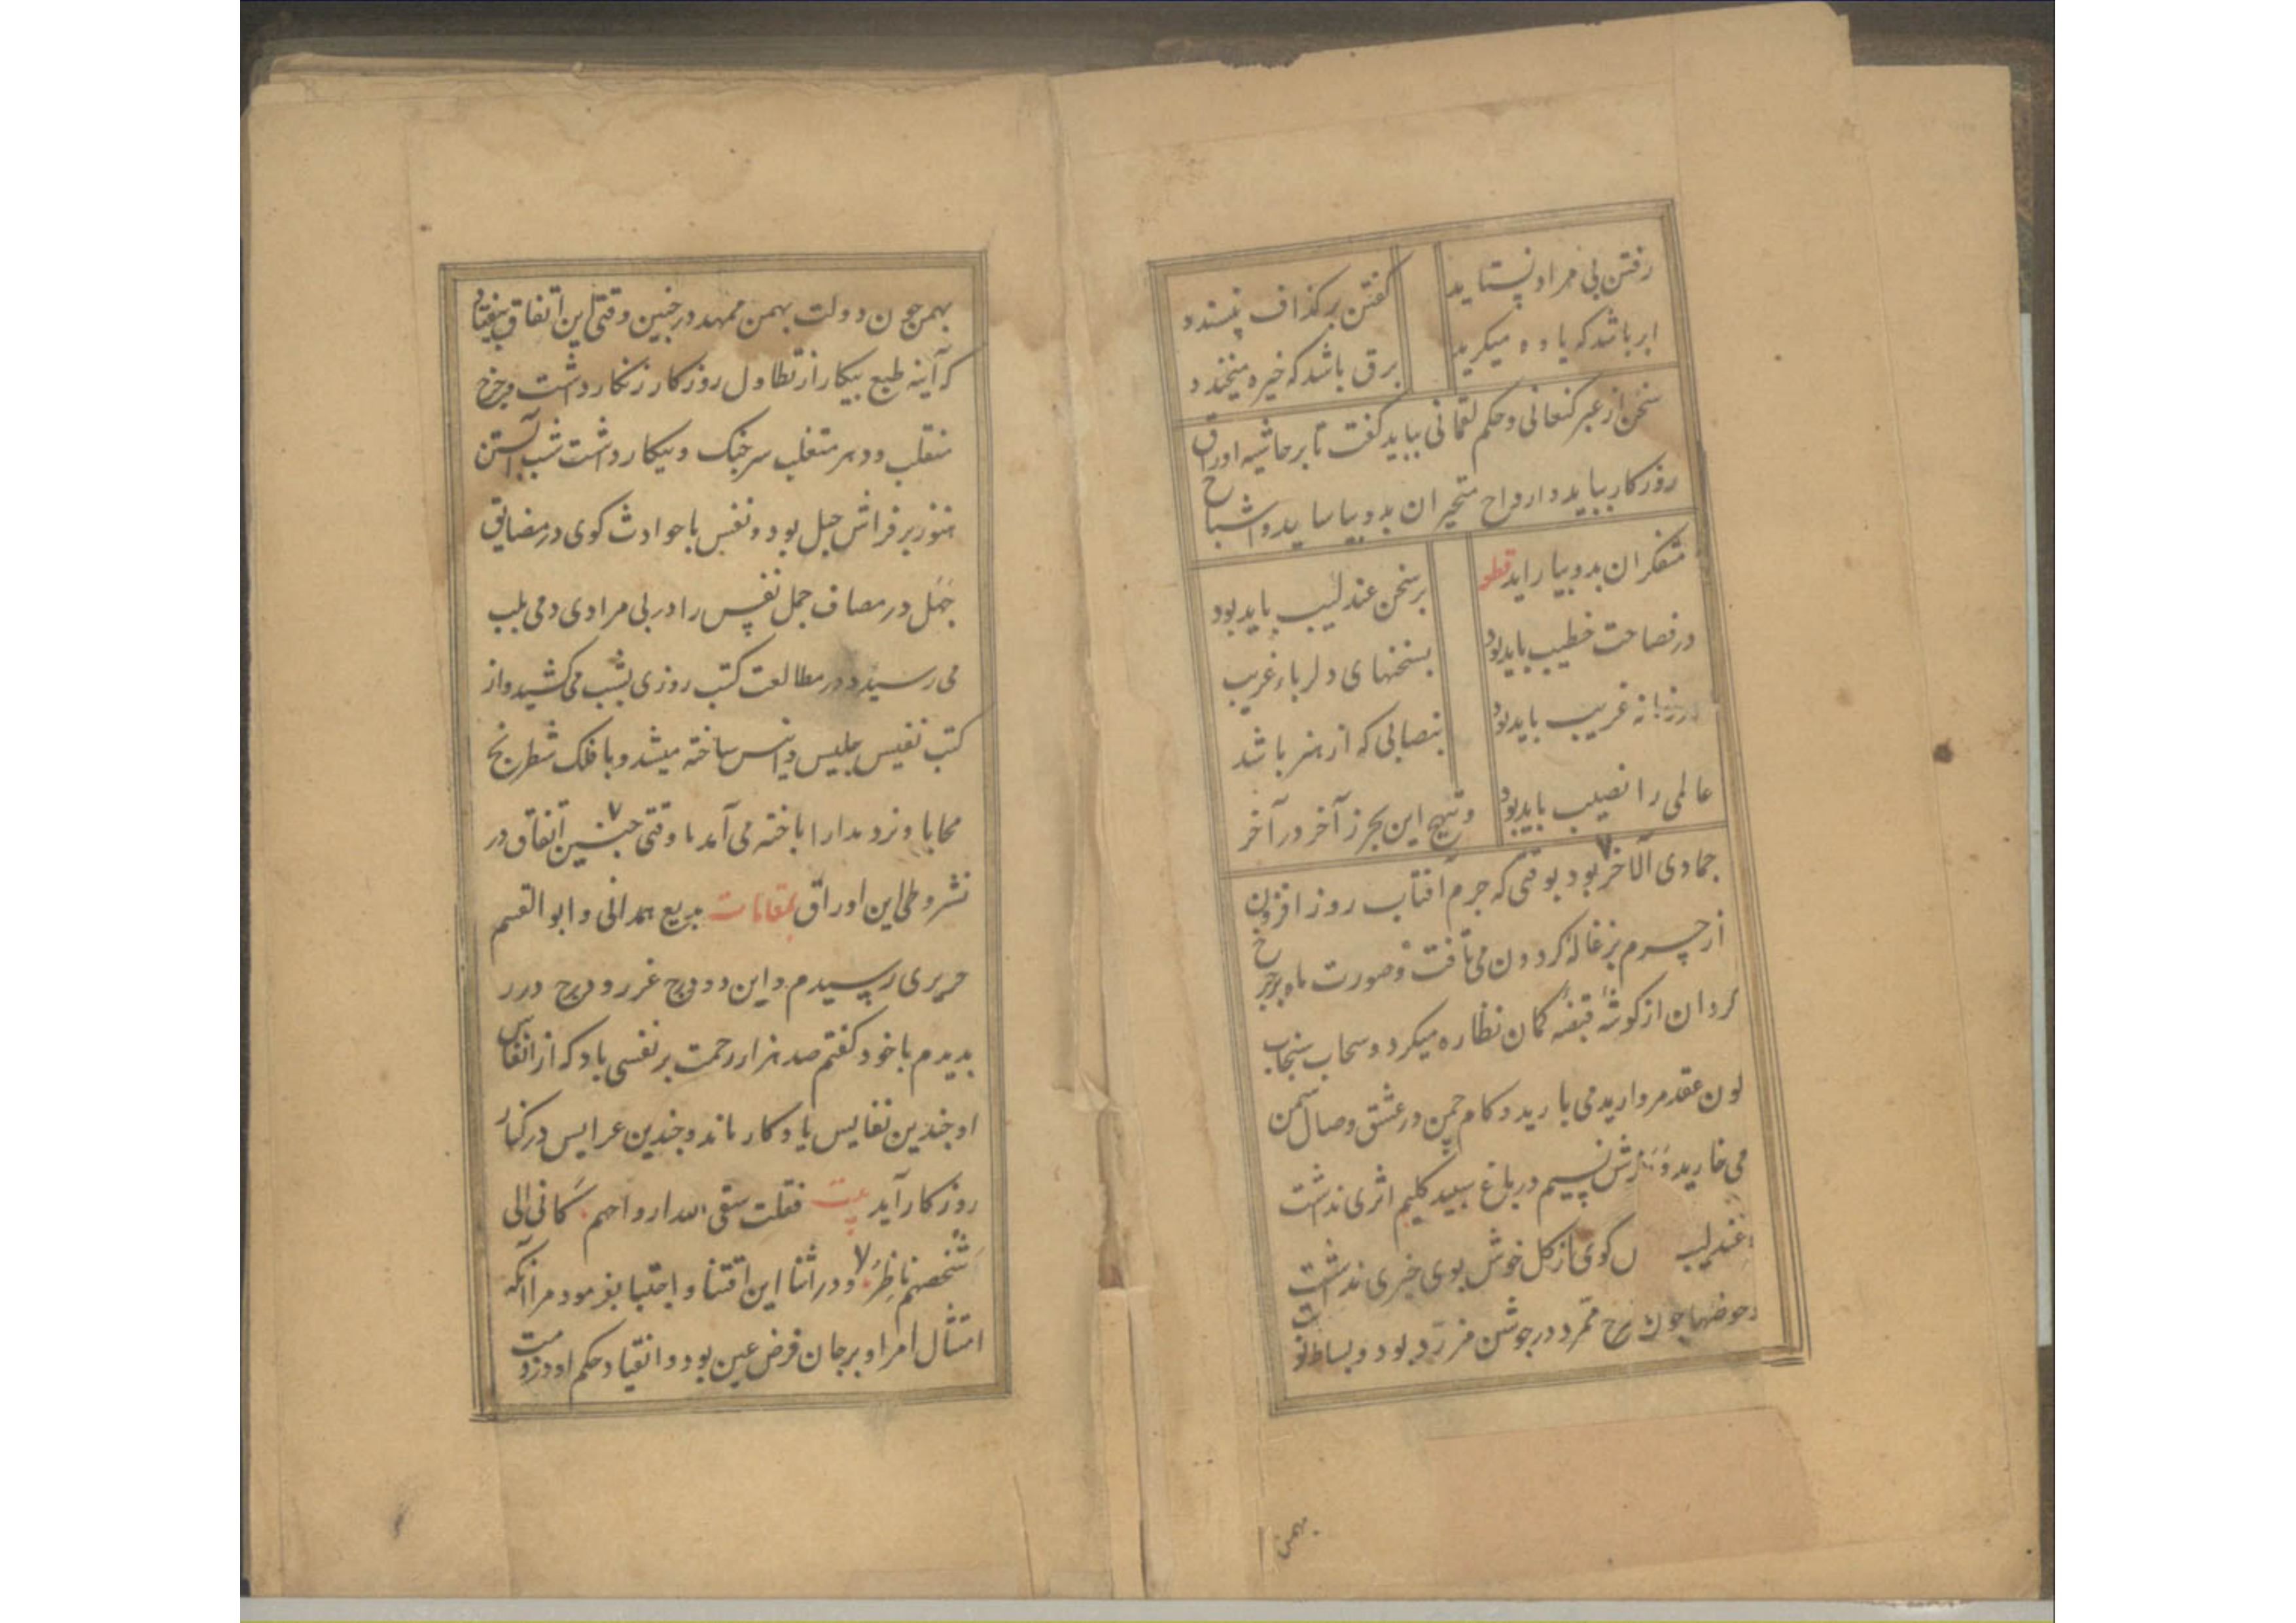 رفتن بی مراد نستاید
گفتن بر گذاف نپسندد
ابر باشد که یاوه میگرید
برق باشد که خیره میخندد
سخن از عبر کنعانی و حکم لقمانی بباید گفت تا بر حاشیه اوراق
روزگار بباید و ارواح متحیران بدو بیاساید و اشباح
متفکران بدو بیاراید قطعه
بر سخن عندلیب باید بود
در فصاحت خطیب باید بود
بسخنهای دلرباء غریب
در زمانه غریب باید بود
بنصابی که از هنر باشد
عالمی را نصیب باید بود
و تهیج این بحر زآخر در آخر
جمادی الآخر بود بوقتی که جرم آفتاب روز افزون
از چرم بزغاله گردون می تافت و صورت ماه بر چرخ
گردان از گوشه قبضه کمان نظاره میکرد و سحاب سنجاب
لون عقد مروارید می بارید و کام چمن در عشق وصال سمن
می خارید و نرش نسیم در باغ سپید گلیم اثری نداشت
عندلیب گوی از گل خوش بوی خبری نداشت
حوضها چون زرح ممرد در جوشن مزرد بود و بساط توت
بهمن
بهمن چون دولت بهمن ممهد در چنین وقتی این اتفاق بیفتاد
که آینه طبع بیکار از تطاول روزگار زنگار داشت و چرخ
منقلب و دهر متغلب سر جنک و پیکار داشت شب آبستن
هنوز بر فراش حبل بود و نفس با حوادث گوی در مضایق
جمل در مصاف جمل نفس را در بی مرادی دمی بلب
می رسید و در مطالعت کتب روزی بشب می کشید و از
کتب نفیس جلیس و انیس ساخته میشد و با فلک شطرنج
محابا و نرد مدارا باخته می آمد تا وقتی چنین اتفاق در
نشر و طی این اوراق بمقامات بدیع همدانی و ابو القسم
حریری رسیدم و این دو درج غرر و درج درر
بدیدم با خود گفتم صد هزار رحمت بر نفسی باد که از انفاس
او چندین نفایس یادگار ماند و چندین عرایس در کنار
روزگار آید بیت فقلت سقی الله ارواحهم کانی الی
شخصهم ناظر و در اثنا این اقتنا و اجتبا بفرمود مرا آنکه
امتثال امر او بر جان فرض عین بود و انقیاد حکم او در ذمت